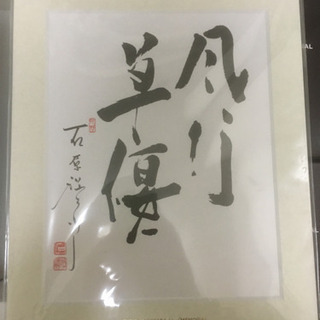 風行
草偃
石原